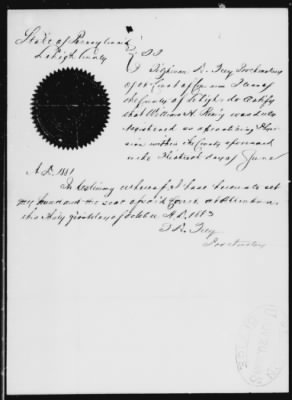 State of Pennsylvania
Lehigh County } SS
I Tilghman D. Frey Prothonotary
of the Court of Common Pleas of
the County of Lehigh do certify
that William H. King was duly
registered as a practicing Physi
cian within the County aforesaid
on the first day of June
A.D. 1881
In testimony whereof I have hereunto set
my hand and the seal of said Court, at Allentown,
this thirty first day of October A.D. 1883
T. D. Frey
Prothonotary